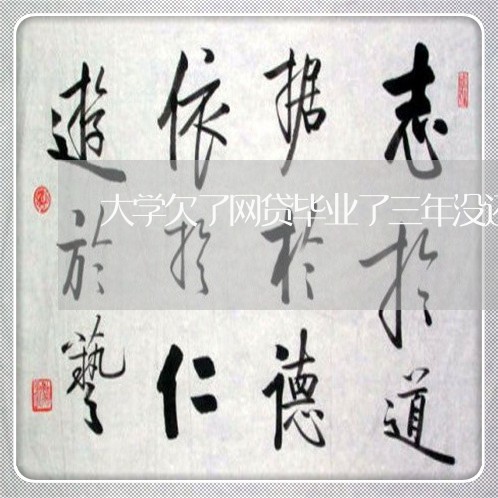 志於道
据於德
依於仁
遊於藝
大学欠了网贷毕业了三年没